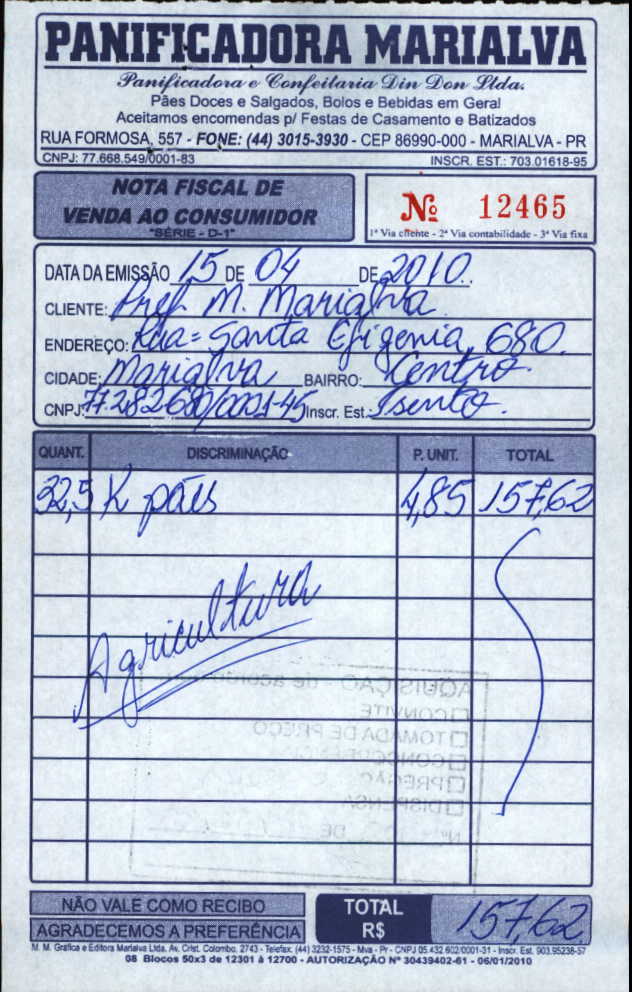 PANIFICADORA MARIALVA
Panificadora e Confeitaria Din Don Ltda.
Pães Doces e Salgados, Bolos e Bebidas em Geral
Aceitamos encomendas p/ Festas de Casamento e Batizados
RUA FORMOSA, 557 - FONE: (44) 3015-3930 - CEP 86990-000 - MARIALVA - PR
CNPJ: 77.668.549/0001-83 INSCR. EST.: 703.01618-95
NOTA FISCAL DE
VENDA AO CONSUMIDOR
"SÉRIE - D-1"
Nº 12465
1ª Via cliente - 2ª Via contabilidade - 3ª Via fixa
DATA DA EMISSÃO 15 DE 04 DE 2010
CLIENTE: Pref M. Marialva
ENDEREÇO: Rua = Santa Efigenia, 680
CIDADE: Marialva BAIRRO: Centro
CNPJ: 77.282680/0001-45 Inscr. Est.: Isento
QUANT. DISCRIMINAÇÃO P. UNIT. TOTAL
32,5 K pães 4,85 157,62
Agricultura
AQUISIÇÃO - de acordo
CONVITE
TOMADA DE PREÇO
CONCORRÊNCIA
PREGÃO
DISPENSA
Nº DE
NÃO VALE COMO RECIBO
AGRADECEMOS A PREFERÊNCIA
TOTAL R$ 157,62
M. M. Gráfica e Editora Marialva Ltda. Av. Crist. Colombo, 2743 - Telefax: (44) 3232-1575 - Mva - Pr - CNPJ 05.432.602/0001-31 - Inscr. Est. 903.95238-57
08 Blocos 50x3 de 12301 à 12700 - AUTORIZAÇÃO Nº 30439402-61 - 06/01/2010